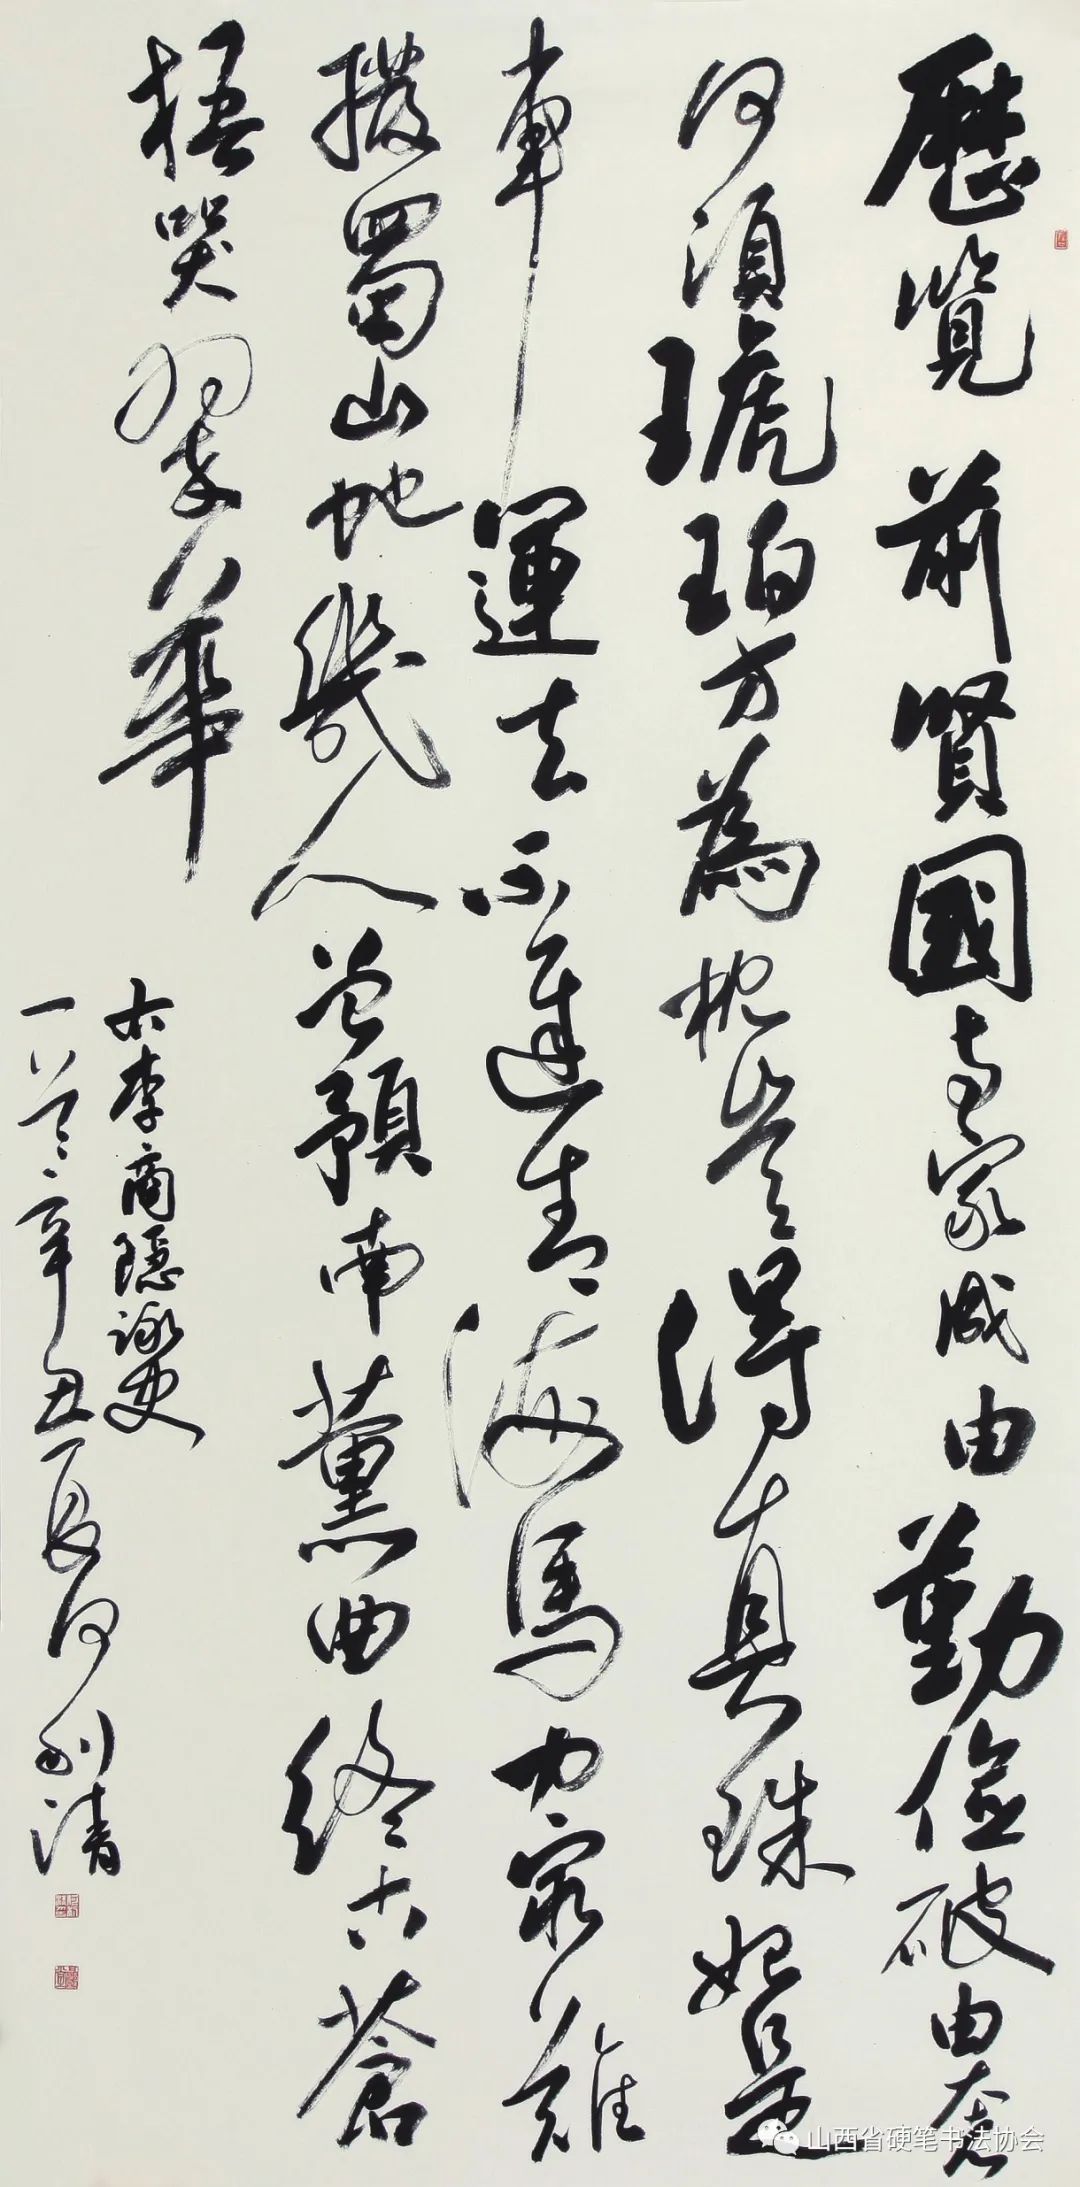 歷覽前賢國与家成由勤儉破由奢
何須琥珀方為枕豈得真珠始是
車運去不逢青海馬力窮難
撥蜀山虵幾人曾預南薰曲終古蒼
梧哭翠華
右李商隱詠史
辛丑夏何利清
山西省硬笔书法协会